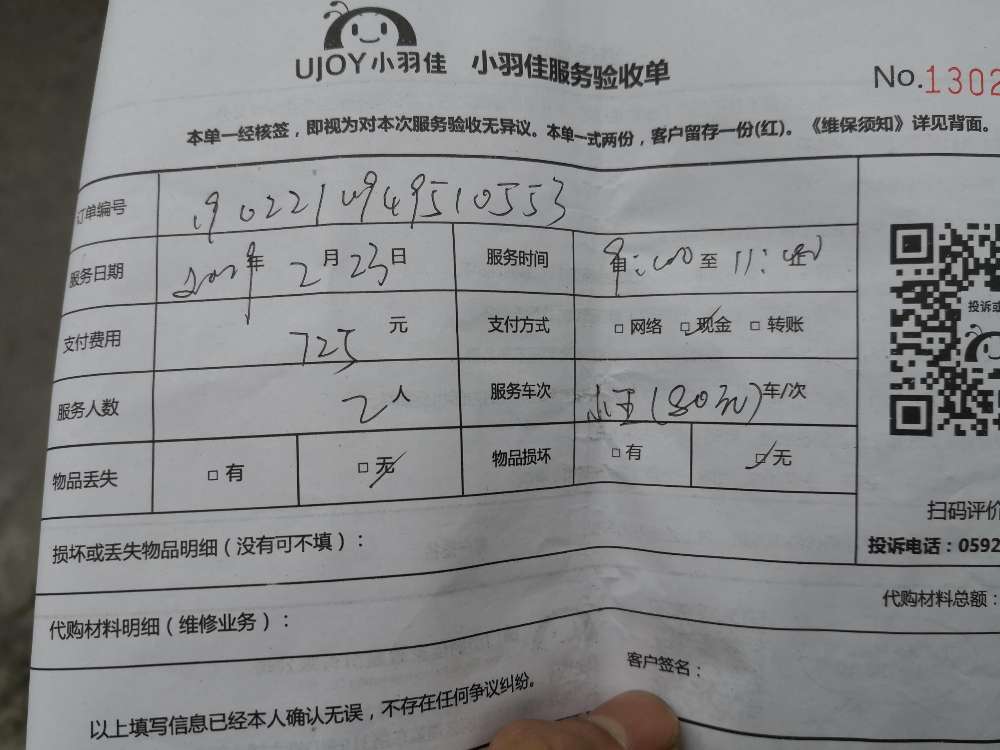 UJOY小羽佳 小羽佳服务验收单 No.1302
本单一经核签，即视为对本次服务验收无异议。本单一式两份，客户留存一份(红)。《维保须知》详见背面。
订单编号 1902210949510553
服务日期 年 2月23日 服务时间 至 11:
支付费用 725元 支付方式 □网络 □现金 □转账
服务人数 2人 服务车次 小王(80元)车/次
物品丢失 □有 □无 物品损坏 □有 □无
投诉或
扫码评价
投诉电话：0592
损坏或丢失物品明细（没有可不填）：
代购材料明细（维修业务）： 代购材料总额：
客户签名：
以上填写信息已经本人确认无误，不存在任何争议纠纷。